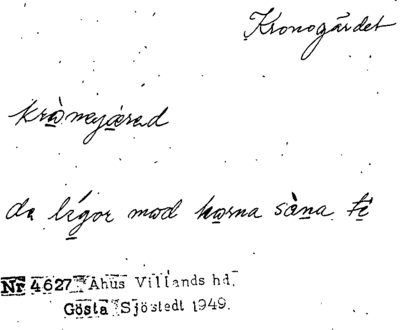 Kronogärdet
krònejæred
da lígor mod horna sòna tí
Nr 4627 Åhus Villands hd.
Gösta Sjöstedt 1949.